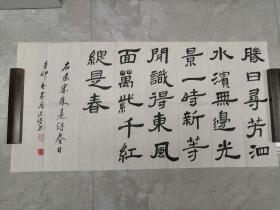 勝日尋芳泗
水濱無邊光
景一時新等
閒識得東風
面萬紫千紅
總是春
詩春日
辛卯